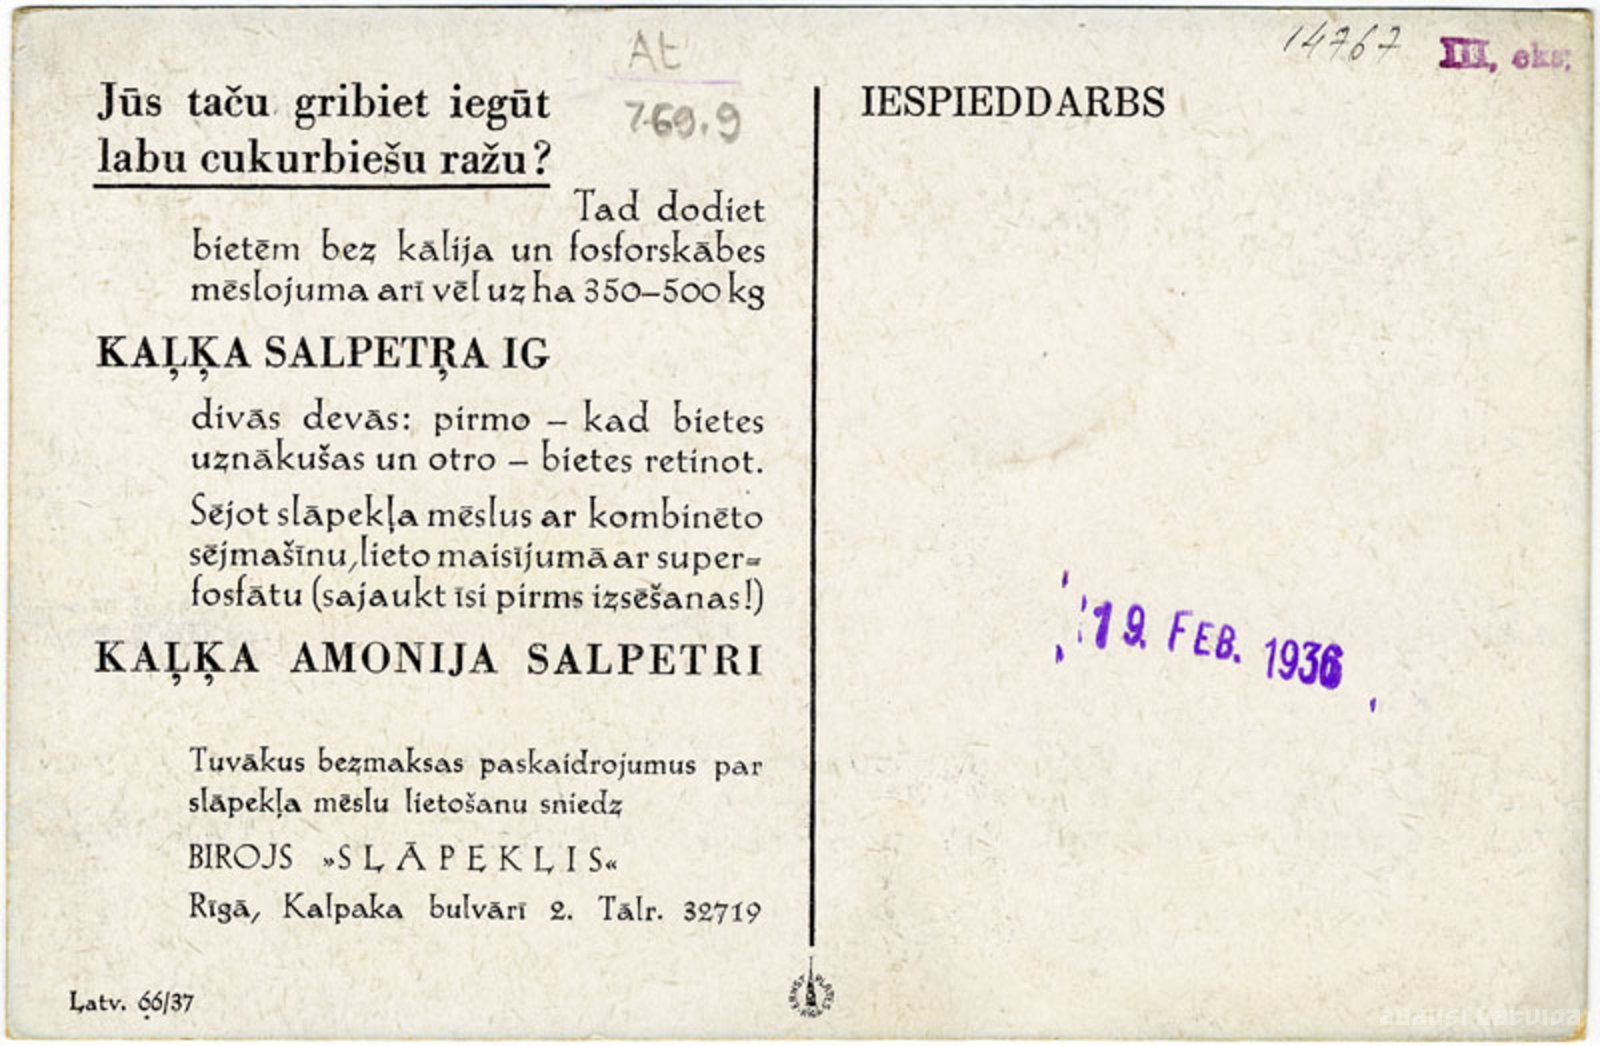 14767
III, eks:
At
769.9
Jūs taču gribiet iegūt
labu cukurbiešu ražu?
Tad dodiet
bietēm bez kālija un fosforskābes
mēslojuma arī vēl uz ha 350–500 kg
KAĻĶA SALPETŖA IG
divās devās: pirmo – kad bietes
uznākušas un otro – bietes retinot.
Sējot slāpekļa mēslus ar kombinēto
sējmašīnu, lieto maisījumā ar super=
fosfātu (sajaukt īsi pirms izsēšanas!)
KAĻĶA AMONIJA SALPETRI
Tuvākus bezmaksas paskaidrojumus par
slāpekļa mēslu lietošanu sniedz
BIROJS »SĻĀPEKĻIS«
Rīgā, Kalpaka bulvārī 2. Tālr. 32719
Ļatv. 66/37
IESPIEDDARBS
19. FEB. 1936